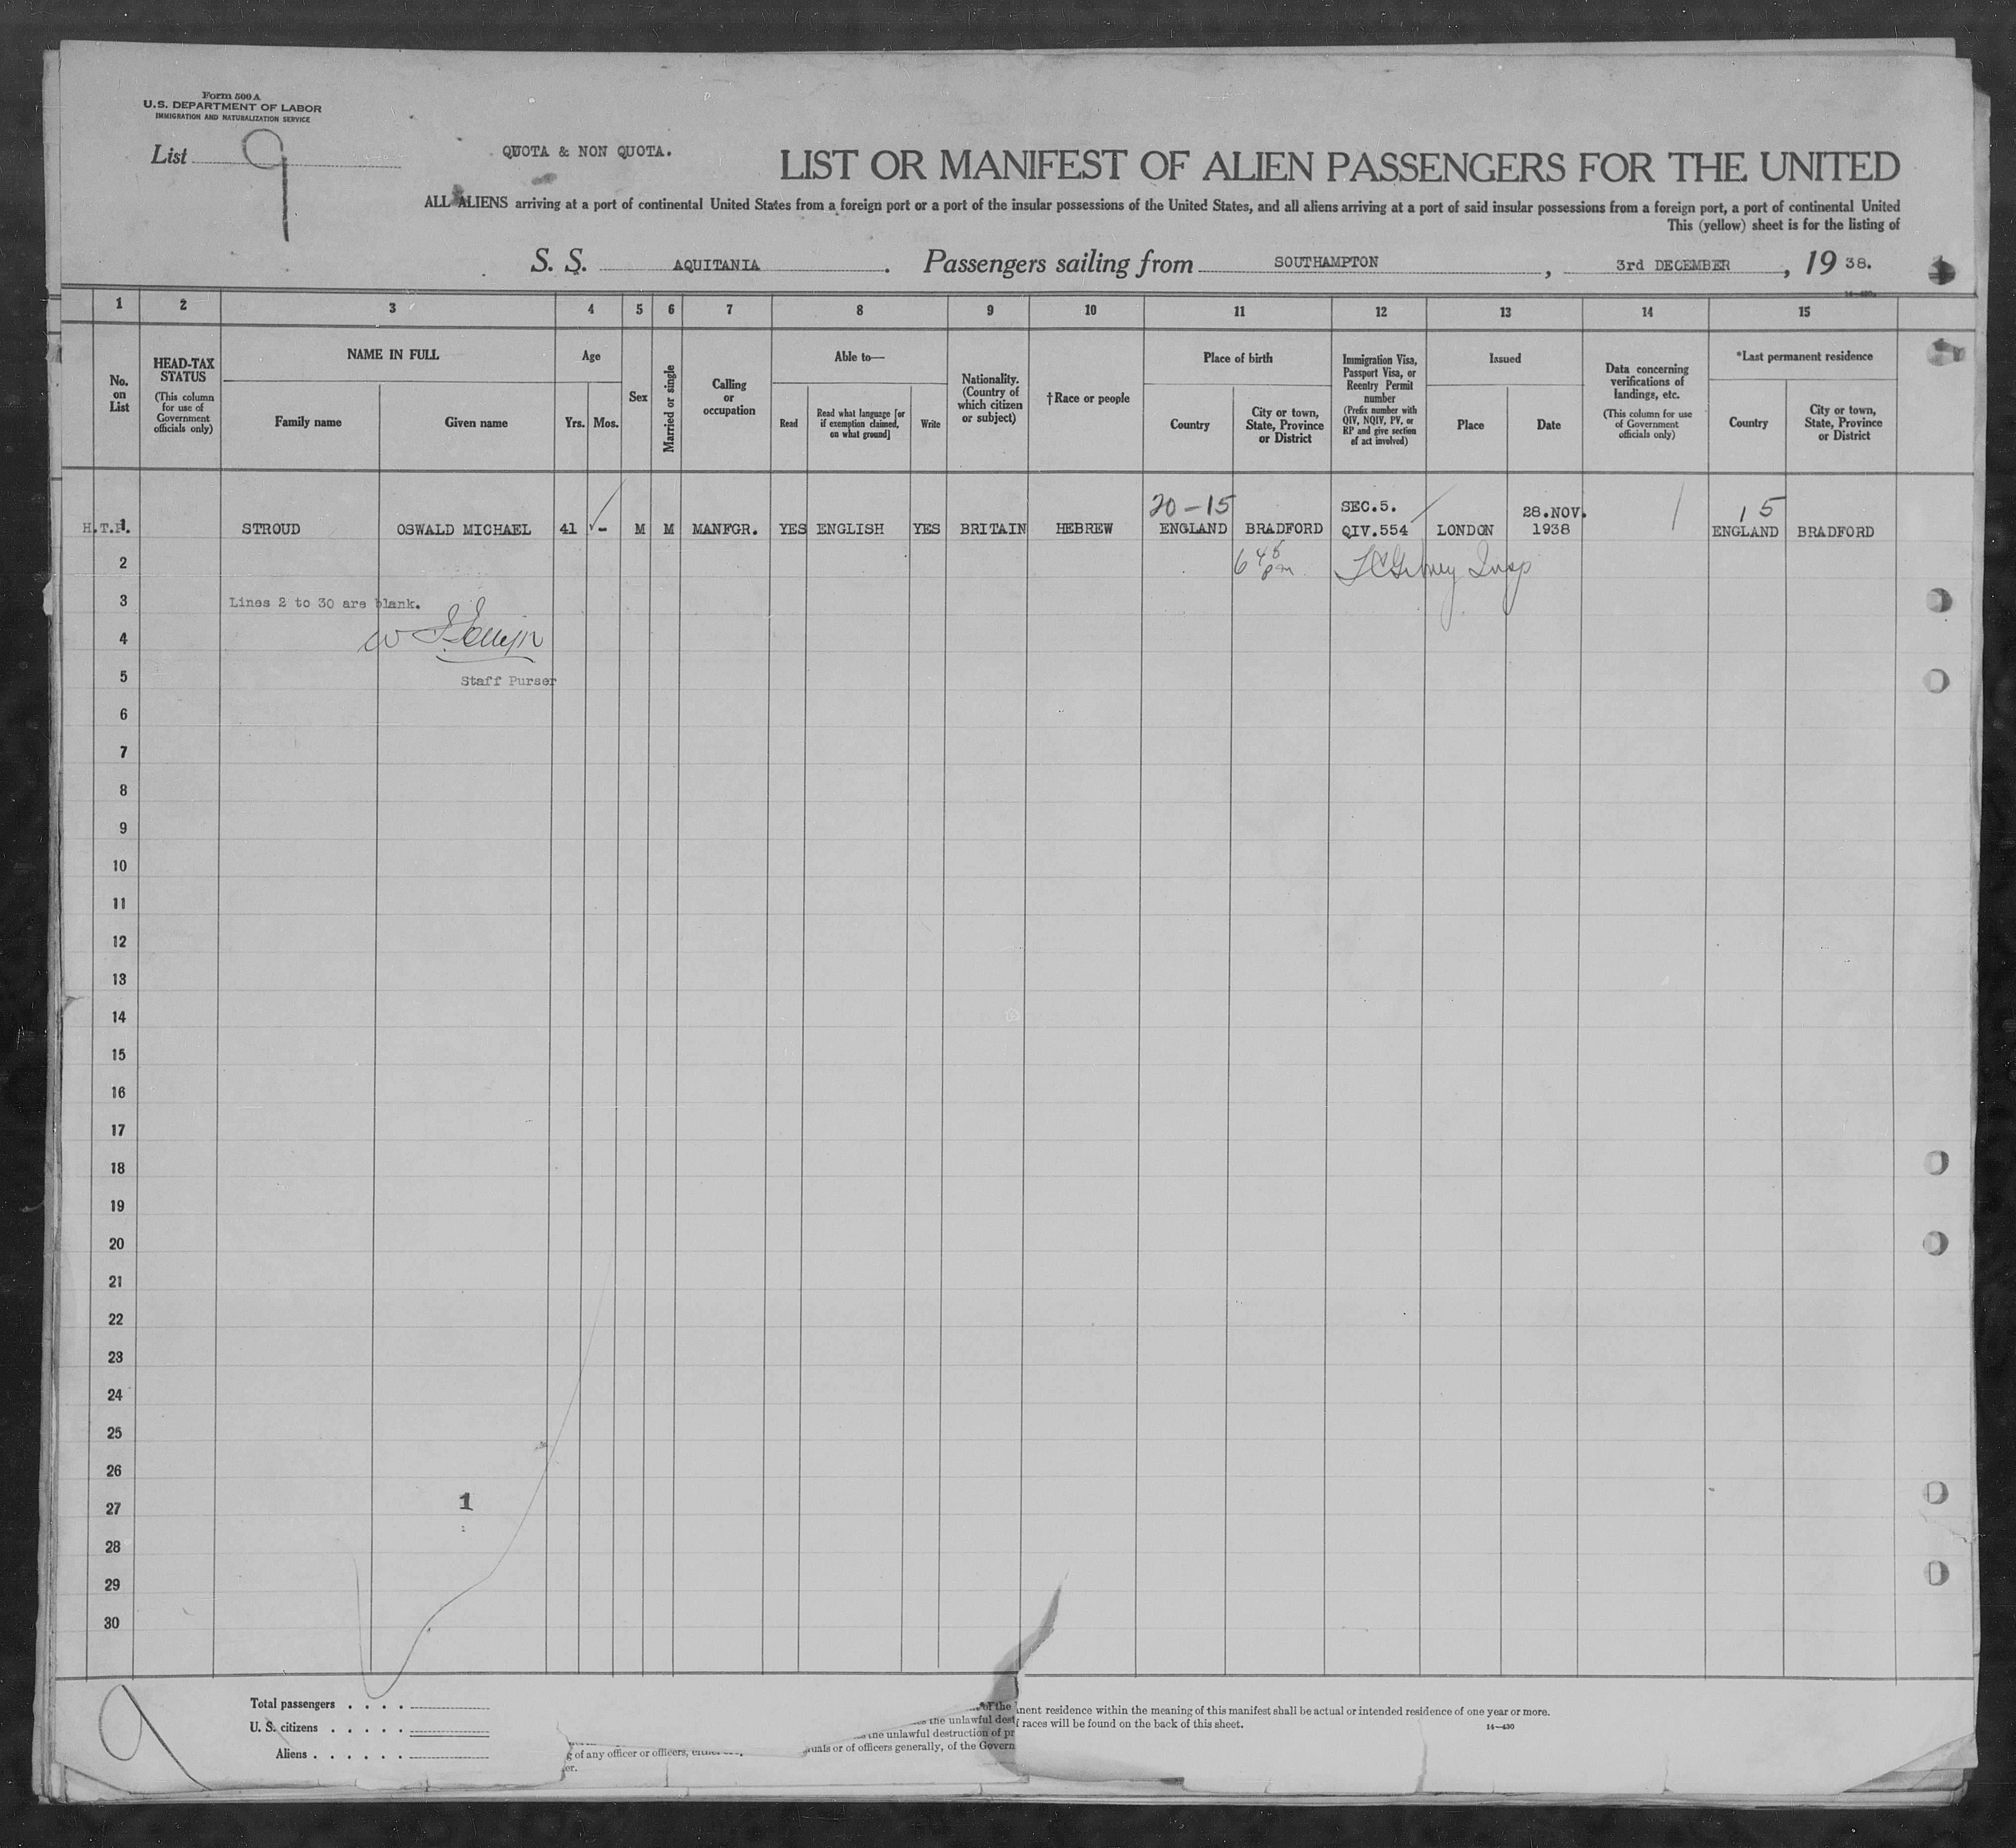 Form 500 A
U.S. DEPARTMENT OF LABOR
IMMIGRATION AND NATURALIZATION SERVICE
List 9
QUOTA & NON QUOTA.
LIST OR MANIFEST OF ALIEN PASSENGERS FOR THE UNITED
ALL ALIENS arriving at a port of continental United States from a foreign port or a port of the insular possessions of the United States, and all aliens arriving at a port of said insular possessions from a foreign port, a port of continental United
This (yellow) sheet is for the listing of
S. S. AQUITANIA. Passengers sailing from SOUTHAMPTON, 3rd DECEMBER, 19 38.
1 2 3 4 5 6 7 8 9 10 11 12 13 14 15
No. on List
HEAD-TAX STATUS
(This column for use of Government officials only)
NAME IN FULL
Family name
Given name
Age
Yrs. Mos.
Sex
Married or single
Calling or occupation
Able to—
Read
Read what language [or if exemption claimed, on what ground]
Write
Nationality. (Country of which citizen or subject)
†Race or people
Place of birth
Country
City or town, State, Province or District
Immigration Visa, Passport Visa, or Reentry Permit number
(Prefix number with QIV, NQIV, PV, or RP and give section of act involved)
Issued
Place
Date
Data concerning verifications of landings, etc.
(This column for use of Government officials only)
*Last permanent residence
Country
City or town, State, Province or District
20-15 SEC.5. 28.NOV. 15
1 STROUD OSWALD MICHAEL 41 - M M MANFGR. YES ENGLISH YES BRITAIN HEBREW ENGLAND BRADFORD QIV.554 LONDON 1938 ENGLAND BRADFORD
2 6 45 pm Insp
3 Lines 2 to 30 are blank.
4
5 Staff Purser
6
7
8
9
10
11
12
13
14
15
16
17
18
19
20
21
22
23
24
25
26
27 1
28
29
30
9
Total passengers . . . .
U. S. citizens . . . . .
Aliens . . . . . .
of the
nent residence within the meaning of this manifest shall be actual or intended residence of one year or more.
the unlawful dest
f races will be found on the back of this sheet.
14—430
the unlawful destruction of pr
g of any officer or officers,
uals or of officers generally, of the Govern
er.